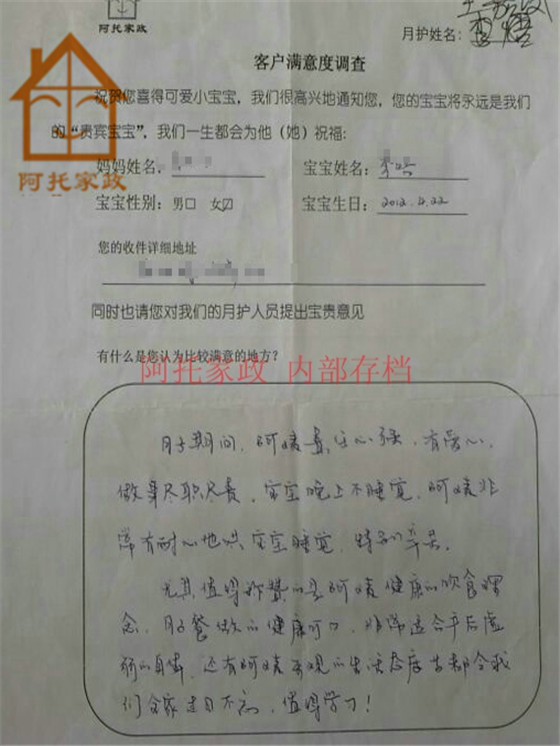 阿托家政
月护姓名：
客户满意度调查
祝贺您喜得可爱小宝宝，我们很高兴地通知您，您的宝宝将永远是我们
的“贵宾宝宝”，我们一生都会为他（她）祝福：
阿托家政
妈妈姓名，
宝宝姓名：
宝宝性别：男□ 女☑
宝宝生日：2012.4.22
您的收件详细地址
同时也请您对我们的月护人员提出宝贵意见
有什么是您认为比较满意的地方？
阿托家政 内部存档
月子期间，阿姨责任心强，有爱心，
做事尽职尽责，宝宝晚上不睡觉，阿姨非
常有耐心地哄宝宝睡觉，特别辛苦。
尤其值得称赞的是阿姨健康的饮食理
念，月子餐做的健康可口，非常适合产后虚
弱的身体，还有阿姨乐观的生活态度等都令我
们全家过目不忘，值得学习！